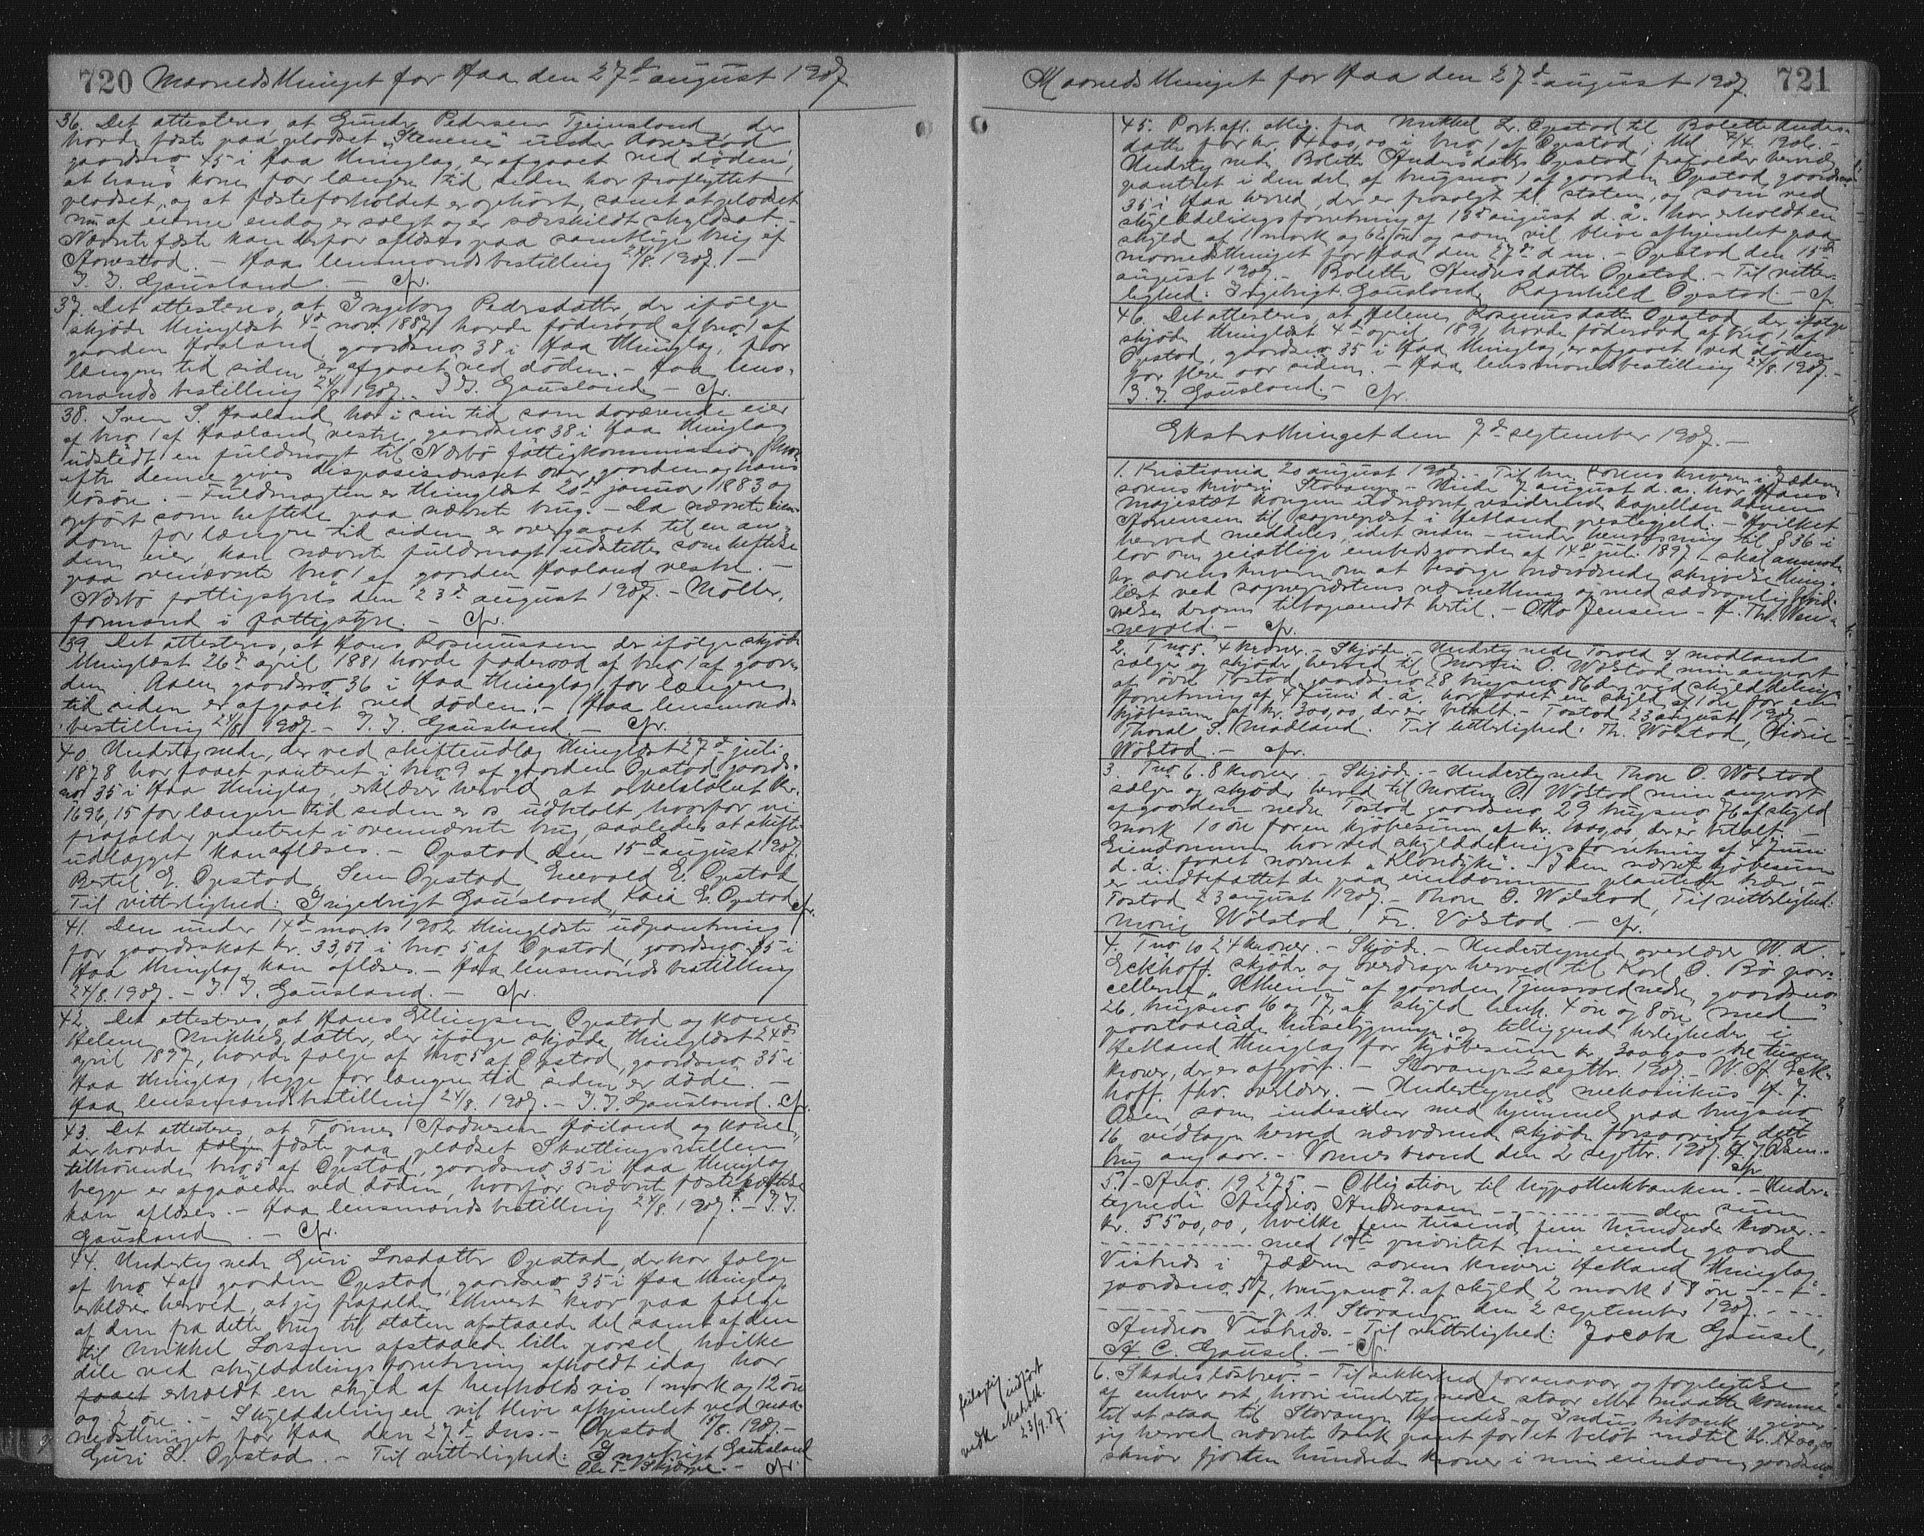 720 Maanedsthinget for Haa den 27de august 1907
36. Det attesteres, at Gunder Pedersen Tjemsland, der
havde fæste paa pladset "Stenene" under Aarestad,
gaardsno 45 i Haa thinglag, er afgaaet ved døden,
at hans kone for længere tid siden har fraflyttet
pladset, og at fæsteforholdet er ophørt, samt at pladset
nu af eierne endog er solgt og er særskildt skyldsat.
Nævnte fæste kan derfor aflæses paa samtlige brug af
Aarestad. - Haa lensmandsbestilling 24/8. 1907. -
T. T. Gausland. - cfr.
37. Det attesteres, at Ingeborg Pedersdatter, der ifølge
skjøde thinglæst 4de novr. 1887 havde føderaad af bno 1 af
gaarden Haaland, gaardsno 38 i Haa thinglag, for
længere tid siden er afgaaet ved døden. - Haa lens-
mandsbestilling 24/8 1907. T. T. Gausland. - cfr.
38. Sven S. Haaland har i sin tid som daværende eier
af bno 1 af Haaland vestre, gaardsno 38 i Haa thinglag
udstedt en fuldmagt til Nærbø fattigkommission, hvor-
efter denne gives disposisionsret over gaarden og hans
løsøre. - Fuldmagten er thinglæst 20de januar 1883 og
opført som heftelse paa nævnte brug. - Da nævnte eien-
dom for længere tid siden er overgaaet til en an-
den eier, kan nævnte fuldmagt udslettes som heftelse
paa ovennævnte bno 1 af gaarden Haaland vestre. -
Nærbø fattigstyre den 23de august 1907. - Møller,
formand i fattigstyre. - cfr.
39. Det attesteres, at Hans Rasmussen der ifølge skjøde
thinglæst 26de april 1881 havde føderaad af bno 1 af gaar-
den Aaen, gaardsno 36 i Haa thinglag, for længere
tid siden er afgaaet ved døden. - Haa lensmands-
bestilling 24/8. 1907. - T. T. Gausland. - cfr.
40. Undertegnede, der ved skifteudlæg thinglæst 27de juli
1878 har faaet panteret i bno 9 af gaarden Opstad, gaards-
no 35 i Haa thinglag, erklærer herved, at arvebeløbet kr.
1696,15 for længere tid siden er os udbetalt, hvorfor vi
frafalder panteret i ovennævnte brug, saaledes at skifte-
udlægget kan aflæses. - Opstad den 15de august 1907.
Bertil E. Opstad, Sem Opstad, Enevald E. Opstad
Til vitterlighed: Ingebrigt Gausland, Kaia E. Opstad. cfr.
41. Den under 14de marts 1902 thinglæste udpantning
for gaardsskat kr. 33,51 i bno 5 af Opstad, gaardsno 35 i
Haa thinglag kan aflæses. - Haa lensmandsbestilling
24/8. 1907. - T. T. Gausland. - cfr.
42. Det attesteres, at Hans Ellingsen Opstad og kone
Helene Mikkelsdatter, der ifølge skjøde thinglæst 24de
april 1897, havde folge af bno 5 af Opstad, gaardsno 35 i
Haa thinglag, begge for længere tid siden er døde. -
Haa lensmandsbestilling 24/8. 1907. - T. T. Gausland. cfr.
43. Det attesteres, at Tønnes Andersen Høiland og kone,
der havde folge fæste paa pladset Skutlingsvillen
tilhørende bno 5 af Opstad, gaardsno 35 i Haa thinglag
begge er afgaaede ved døden, hvorfor nævnte fæsteheftelse
kan aflæses. - Haa lensmandsbestilling 24/8. 1907. - T. T.
Gausland. - cfr.
44. Undertegnede Guri Larsdatter Opstad, der har folge
af bno 4 af gaarden Opstad, gaardsno 35 i Haa thinglag
erklærer herved, at jeg frafalder ethvert krav paa folge
af den fra dette brug til staten afstaaede del samt af den
til Mikkel Larssen afstaaede lille parsel, hvilke
dele ved skylddelingsforretning afholdt idag har
faaet erholdt en skyld af henholdsvis 1 mark og 12 øre
og 2 øre. - Skylddelingen vil blive afhjemlet ved maa-
nedsthinget for Haa den 27de ds. - Opstad 15/8. 1907. -
Guri L. Opstad. - Til vitterlighed: Ingebrigt Gausland
Ole T. Skjærpe. - cfr.
Maanedsthinget for Haa den 27de august 1907. 721
45. Part.afl. oblig. fra Mikkel L. Opstad til Bolette Anders-
datter for kr. 4000,00 i bno 1 af Opstad; thl 7/4 1906. -
Undertegnede, Bolette Andersdatter Opstad frafalder herved
panteret i den del af brugsno 1 af gaarden Opstad, gaardsno
35 i Haa herred, der er frasolgt til staten, og som ved
skylddelingsforretning af 15de august d. å. har erholdt en
skyld af 1 mark og 62 øre og som vil blive afhjemlet paa
maanedsthinget for Haa den 27de d. m. - Opstad den 15de
august 1907. - Bolette Andersdatter Opstad. - Til vitter-
lighed: Ingebrigt Gausland, Ragnhild Opstad. - cfr
46. Det attesteres, at Helene Rasmusdatter Opstad, der ifølge
skjøde thinglæst 4de april 1891 havde føderaad af bno 1 af
Opstad, gaardsno 35 i Haa thinglag, er afgaaet ved døden
for flere aar siden. - Haa lensmandsbestilling 24/8. 1907. -
T. T. Gausland. - cfr.
Ekstrathinget den 7de september 1907. -
1. Kristiania 20 august 1907. - Til hr. sorenskriveren i Jæderens
sorenskriveri Stavanger. - Under 7 august d. a. har Hans
Majestæt kongen udnævnt residerende kapellan
Aanensen til sogneprest i Hetland prestegjeld. - Hvilket
herved meddeles, idet man - under henvisning til § 36 i
lov om geistlige embedsgaarde af 14de juli 1897 - skal anmode
hr. sorenskriveren om at besørge nærværende skrivelse thing-
læst ved sogneprestens værnething og med sædvanlig paa-
tegning derom tilbagesendt hertil. - Otto Jensen - f. Th. Wen-
nevold. - cfr.
2. Tno 5. 4 kroner. - Skjøde. - Undertegnede Torald S. Madland
sælger og skjøder herved til Morten O. Wølstad min anpart
af øvre Tostad gaardsno 28 brugsno 86 der ved skylddelings-
forretning af 4 juni d. å. har faaet en skyld af 1 øre for en
kjøbesum af kr. 300,00, der er betalt. - Tostad 23 august 1907.
Thoral S. Madland. Til vitterlighed: Th. Wølstad,
Wølstad. - cfr.
3. Tno 6. 8 kroner. - Skjøde. - Undertegnede Thore O. Wølstad
sælger og skjøder herved til Morten O. Wølstad min anpart
af gaarden nedre Tostad gaardsno 29 brugsno 76 af skyld
mark 10 øre for en kjøbesum af kr. 1000,00, der er betalt. -
Eiendommen har ved skylddelingsforretning af 4 juni
d. å. faaet navnet "Klondyke". I den nævnte kjøbesum
er indbefattet de paa eiendommen plantede trær. -
Tostad 23 august 1907. - Thore O. Wølstad, Til vitterlighed:
Marie Wølstad, Fr. Vølstad - cfr.
4. Tno 10 24 kroner. - Skjøde. - Undertegnede overlærer W. A.
Eckhoff skjøder og overdrager herved til Karl O. Bø par-
cellerne "Utheim" af gaarden Tjensvold nedre, gaardsno
26, brugsno 16 og 17, af skyld henh. 4 øre og 8 øre med
paastaaende husebygninger og tilliggende herligheder i
Hetland thinglag for kjøbesum kr. 3000,00 tre tusen
kroner, der er afgjort. - Stavanger 2 septbr. 1907. - W. A. Eck-
hoff. fhv. overlærer. - Undertegnede mekanikus H. J.
Aasen som indesidder med hjemmel paa brugsno
16 vedtager herved nærværende skjøde forsaavidt dette
brug angaar. - Vornesstrand den 2 septbr. 1907. H. J. Aasen. -
cfr
5. - Ano. 19275 - Obligation til Hypothekbanken. - Under-
tegnede Andreas Andreassen - - - - - - - den sum
kr. 5500,00, hvilke fem tusend fem hundrede kroner. -
- - - - - - - med 1ste prioritet min eiende gaard
Vistrids i Jæderen sorenskriveri Hetland thinglag
gaardsno. 57, brugsno 7. af skyld 2 mark 58 øre - - - -
- - - - - - - p. t. Stavanger den 2 september 1907. - - -
Andreas Vistrids. - Til vitterlighed: Jacoba Gausel,
A. C. Gausel. - cfr.
6. Skadesløsbrev. - Til sikkerhed for ansvar og forpligtelse
af enhver art, hvori undertegnede staar eller maatte komme
til at staa til Stavanger Handels- og Industribank, giver
jeg herved nævnte bank pant for et beløb indtil kr. 1400,00
skriver fjorten hundrede kroner i min eiendom, gaardsno
feilagtig indført
vedk. ekstrath.
23/9. 07.